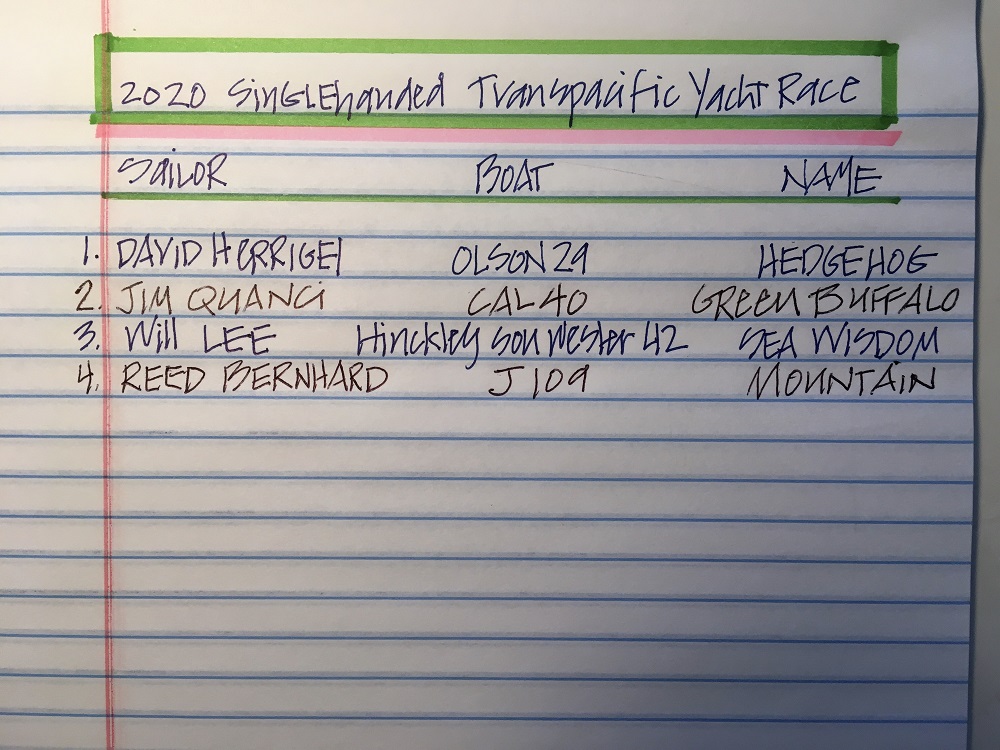 2020 SingLEhanded Transpacific Yacht Race
SAiLOR BOAT NAME
1. DAVID HERRIGEl OLSON 29 HEDGEHOG
2. JIM QUANCi CAL 40 GREEN BUFFALO
3. Will LEE Hinckley sou wester 42 SEA WISDOM
4. REED BERNHARD J 109 MOUNTAiN